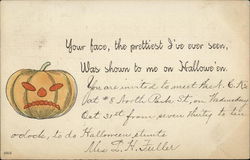 Your face, the prettiest I've ever seen,
Was shown to me on Hallowe'en.
You are invited to meet the N. C. No
at #8 North Park St, on Wednesday
Oct 31st from seven thirty to ten
o'clock, to do Halloween stunts
Mrs D. H. Fuller